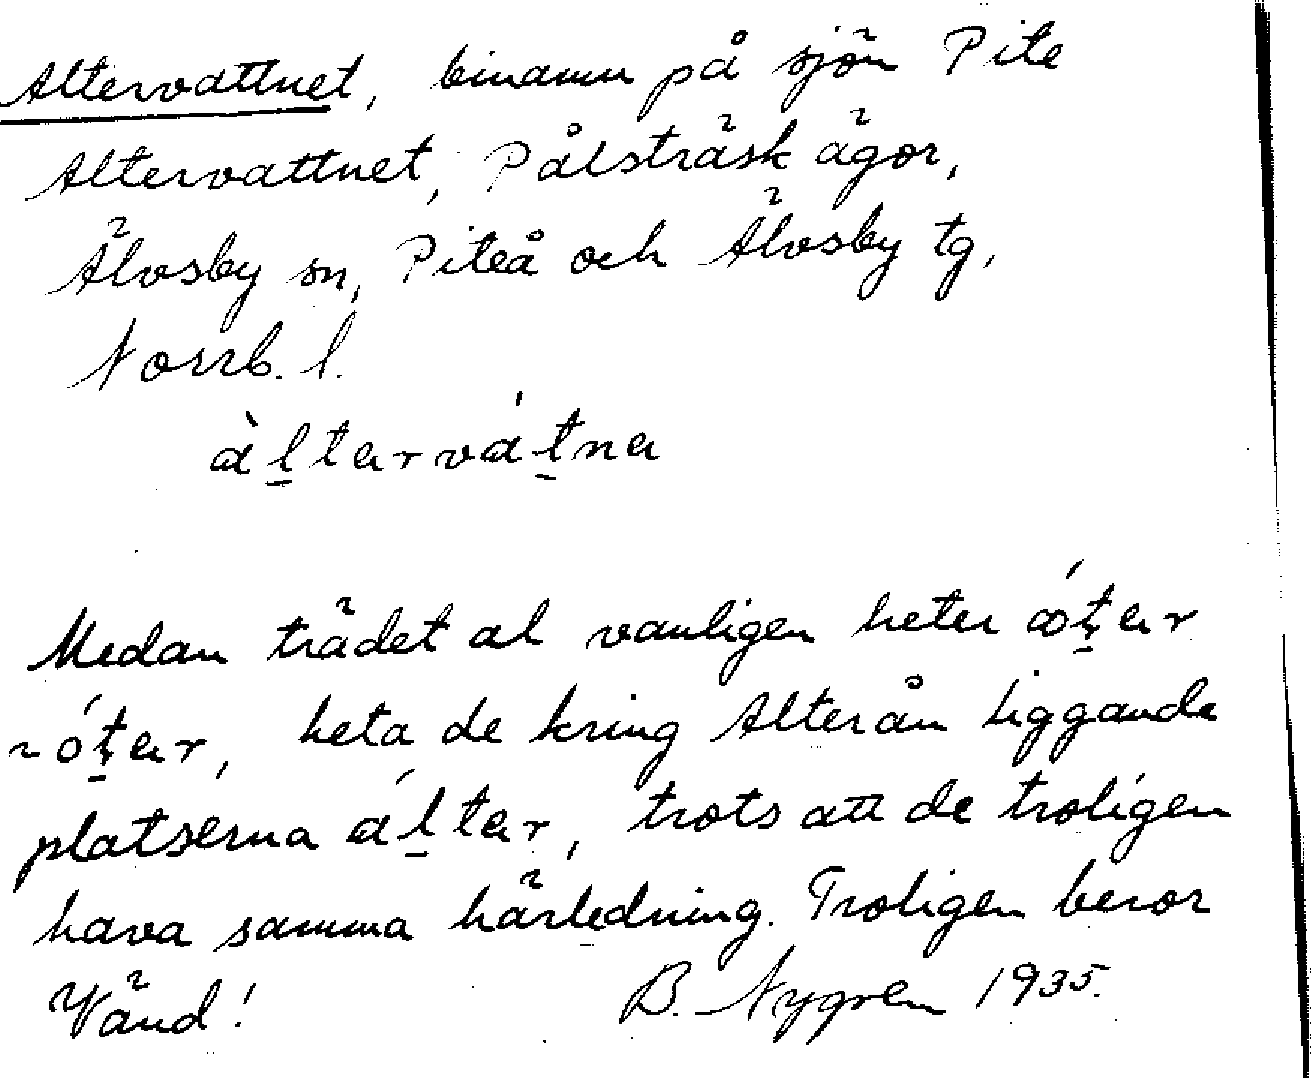 Altervattnet, binamn på sjön Pite
Altervattnet, Pålsträsk ägor,
Älvsby sn, Piteå och Älvsby tg,
Norrb. l.
àltervátne
Medan trädet al vanligen heter
heta de kring Alterån liggande
platserna álter, trots att de troligen
hava samma härledning. Troligen beror
Vänd! B. Nygren 1935.